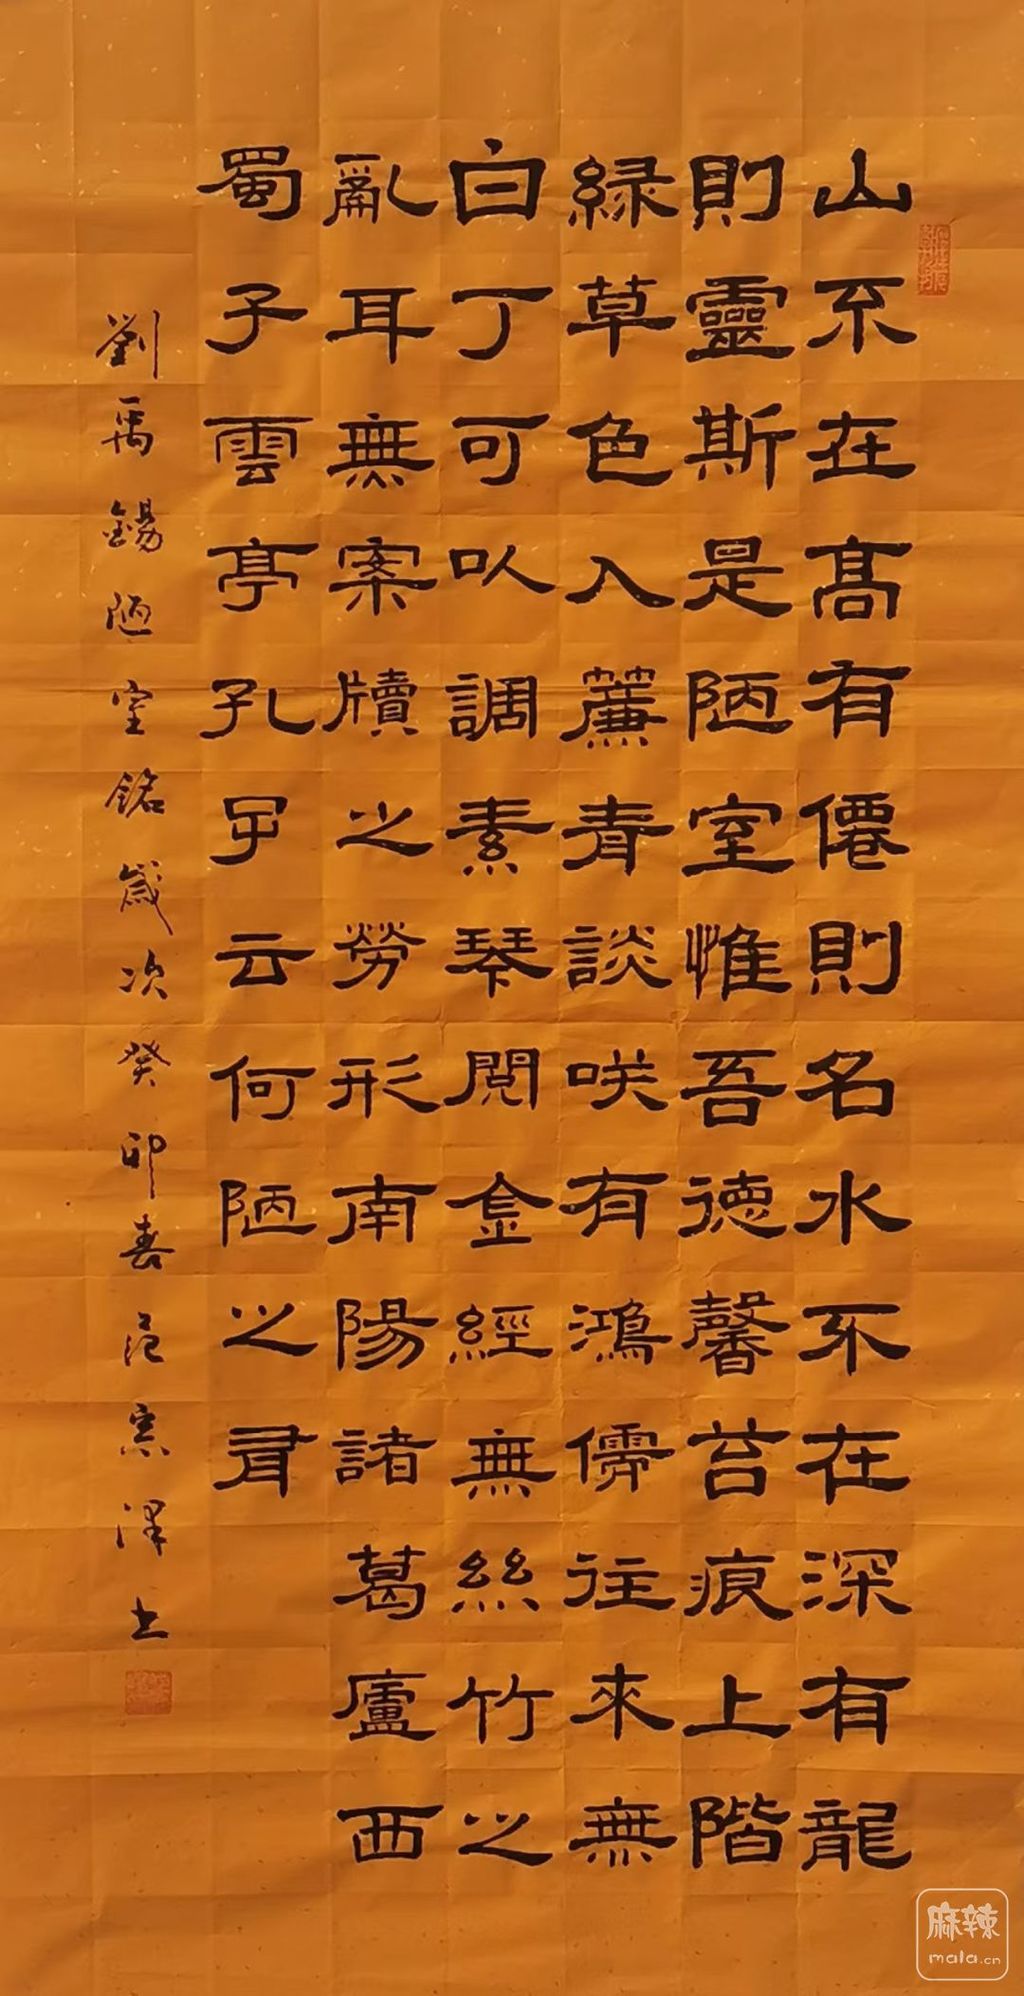 山不在髙有僊則名水不在深有龍
則靈斯是陋室惟吾德馨苔痕上階
緑草色入簾青談咲有鴻儒往來無
白丁可以調素琴閱金經無絲竹之
亂耳無案牘之勞形南陽諸葛廬西
蜀子雲亭孔子云何陋之有
劉禹錫陋室銘歲次癸卯春范澤书
麻辣
mala.cn